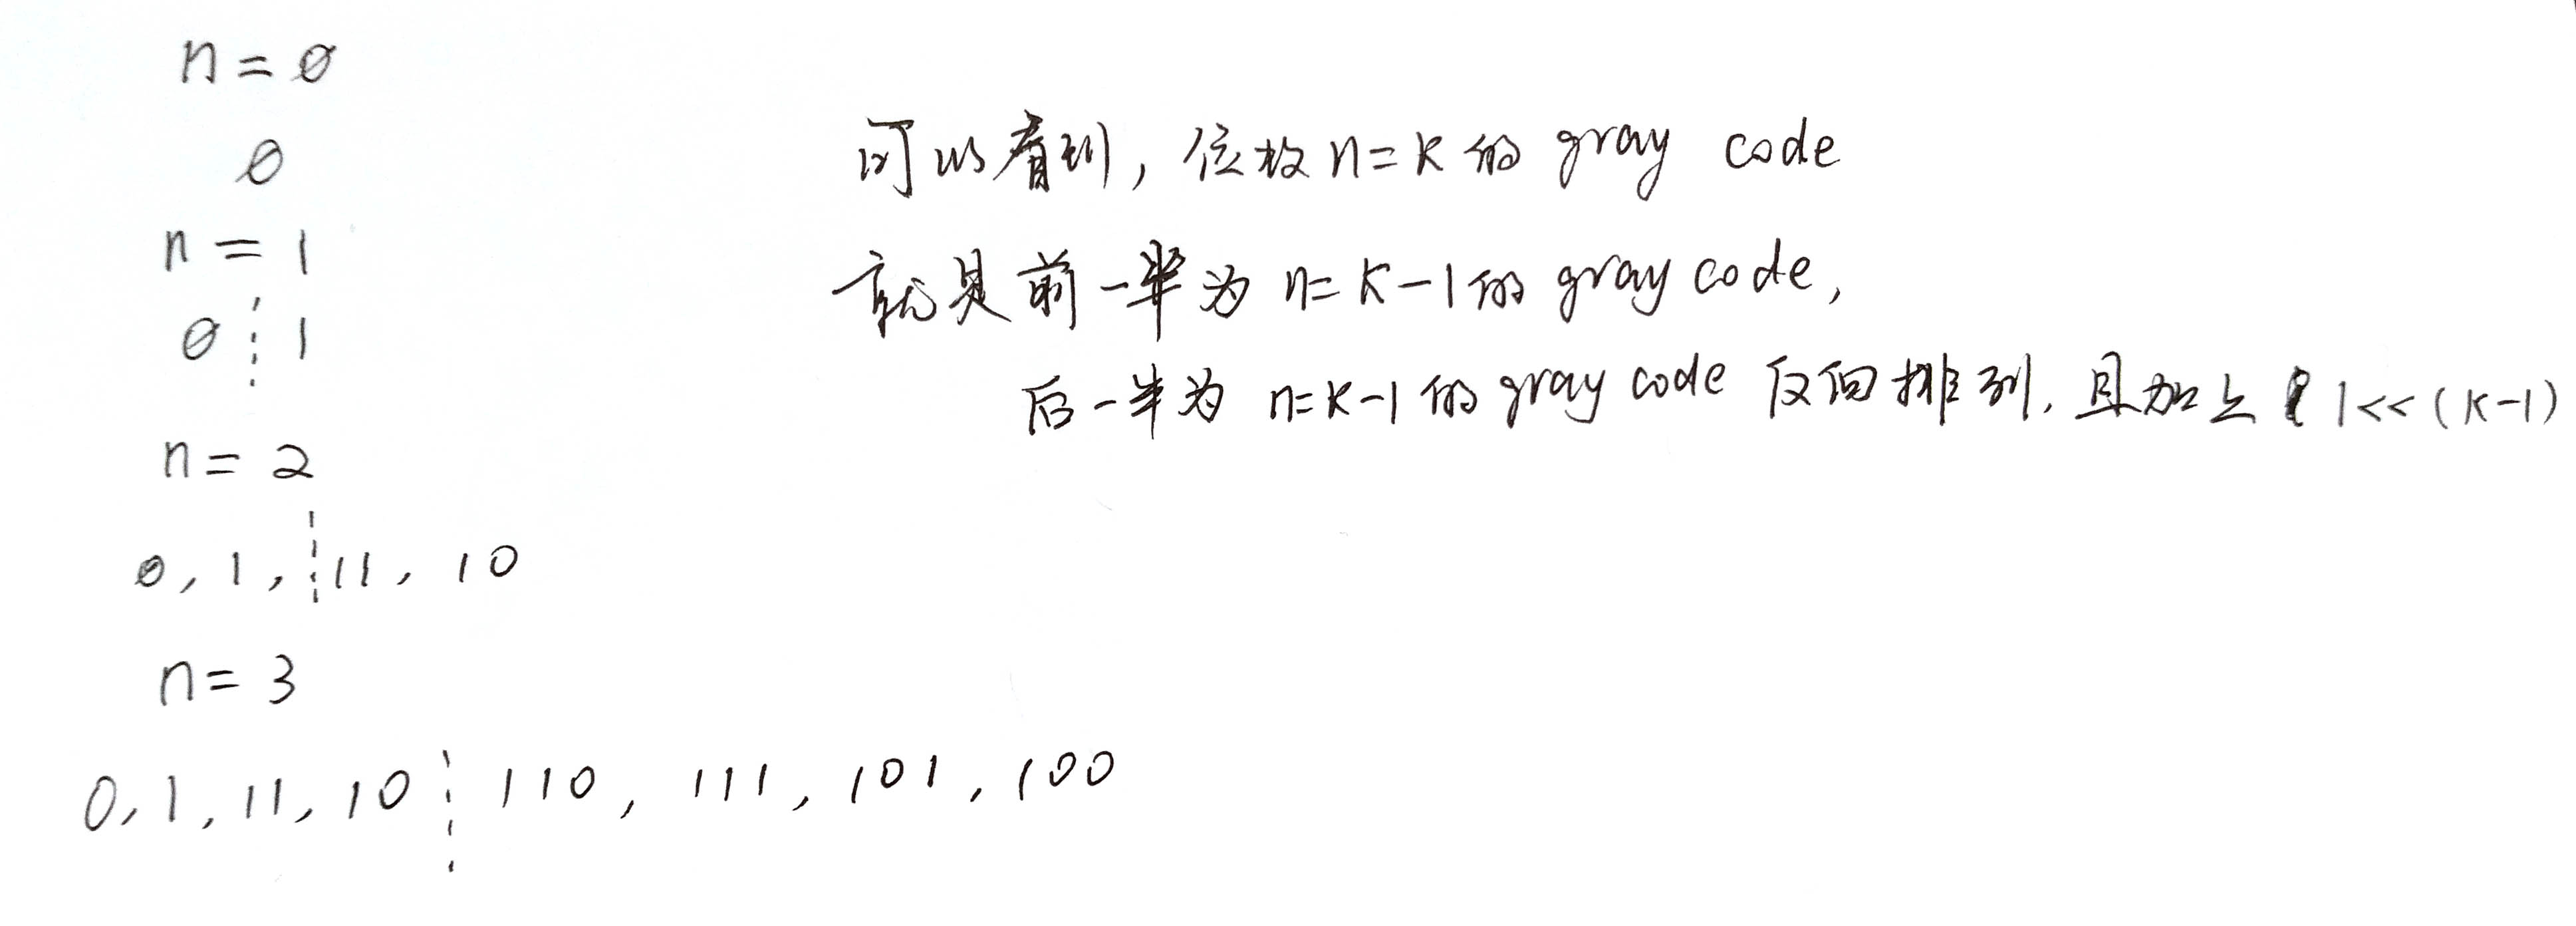 n = 0
0
n = 1
0 1
n = 2
0, 1, 11, 10
n = 3
0, 1, 11, 10 110, 111, 101, 100
可以看到, 位数 n = k 的 gray code
就是前一半为 n = k - 1 的 gray code,
后一半为 n = k - 1 的 gray code 反向排列, 且加上 1 << (k - 1)